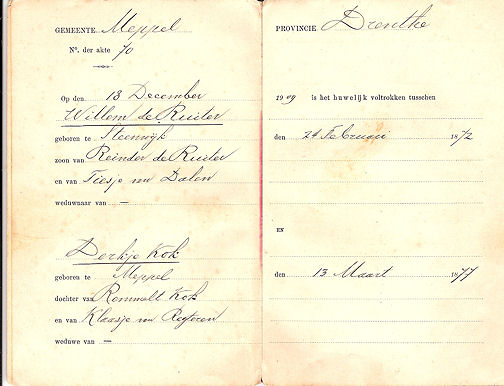 GEMEENTE Meppel
No. der akte 70
Op den 13 December
Willem de Ruiter
geboren te Steenwijk
zoon van Reinder de Ruiter
en van Tiesje van Dalen
weduwnaar van —
Derkje Kok
geboren te Meppel
dochter van Rommelt Kok
en van Klaasje van Regteren
weduwe van —
PROVINCIE Drenthe
1909 is het huwelijk voltrokken tusschen
den 24 Februari 1872
EN
den 13 Maart 1877